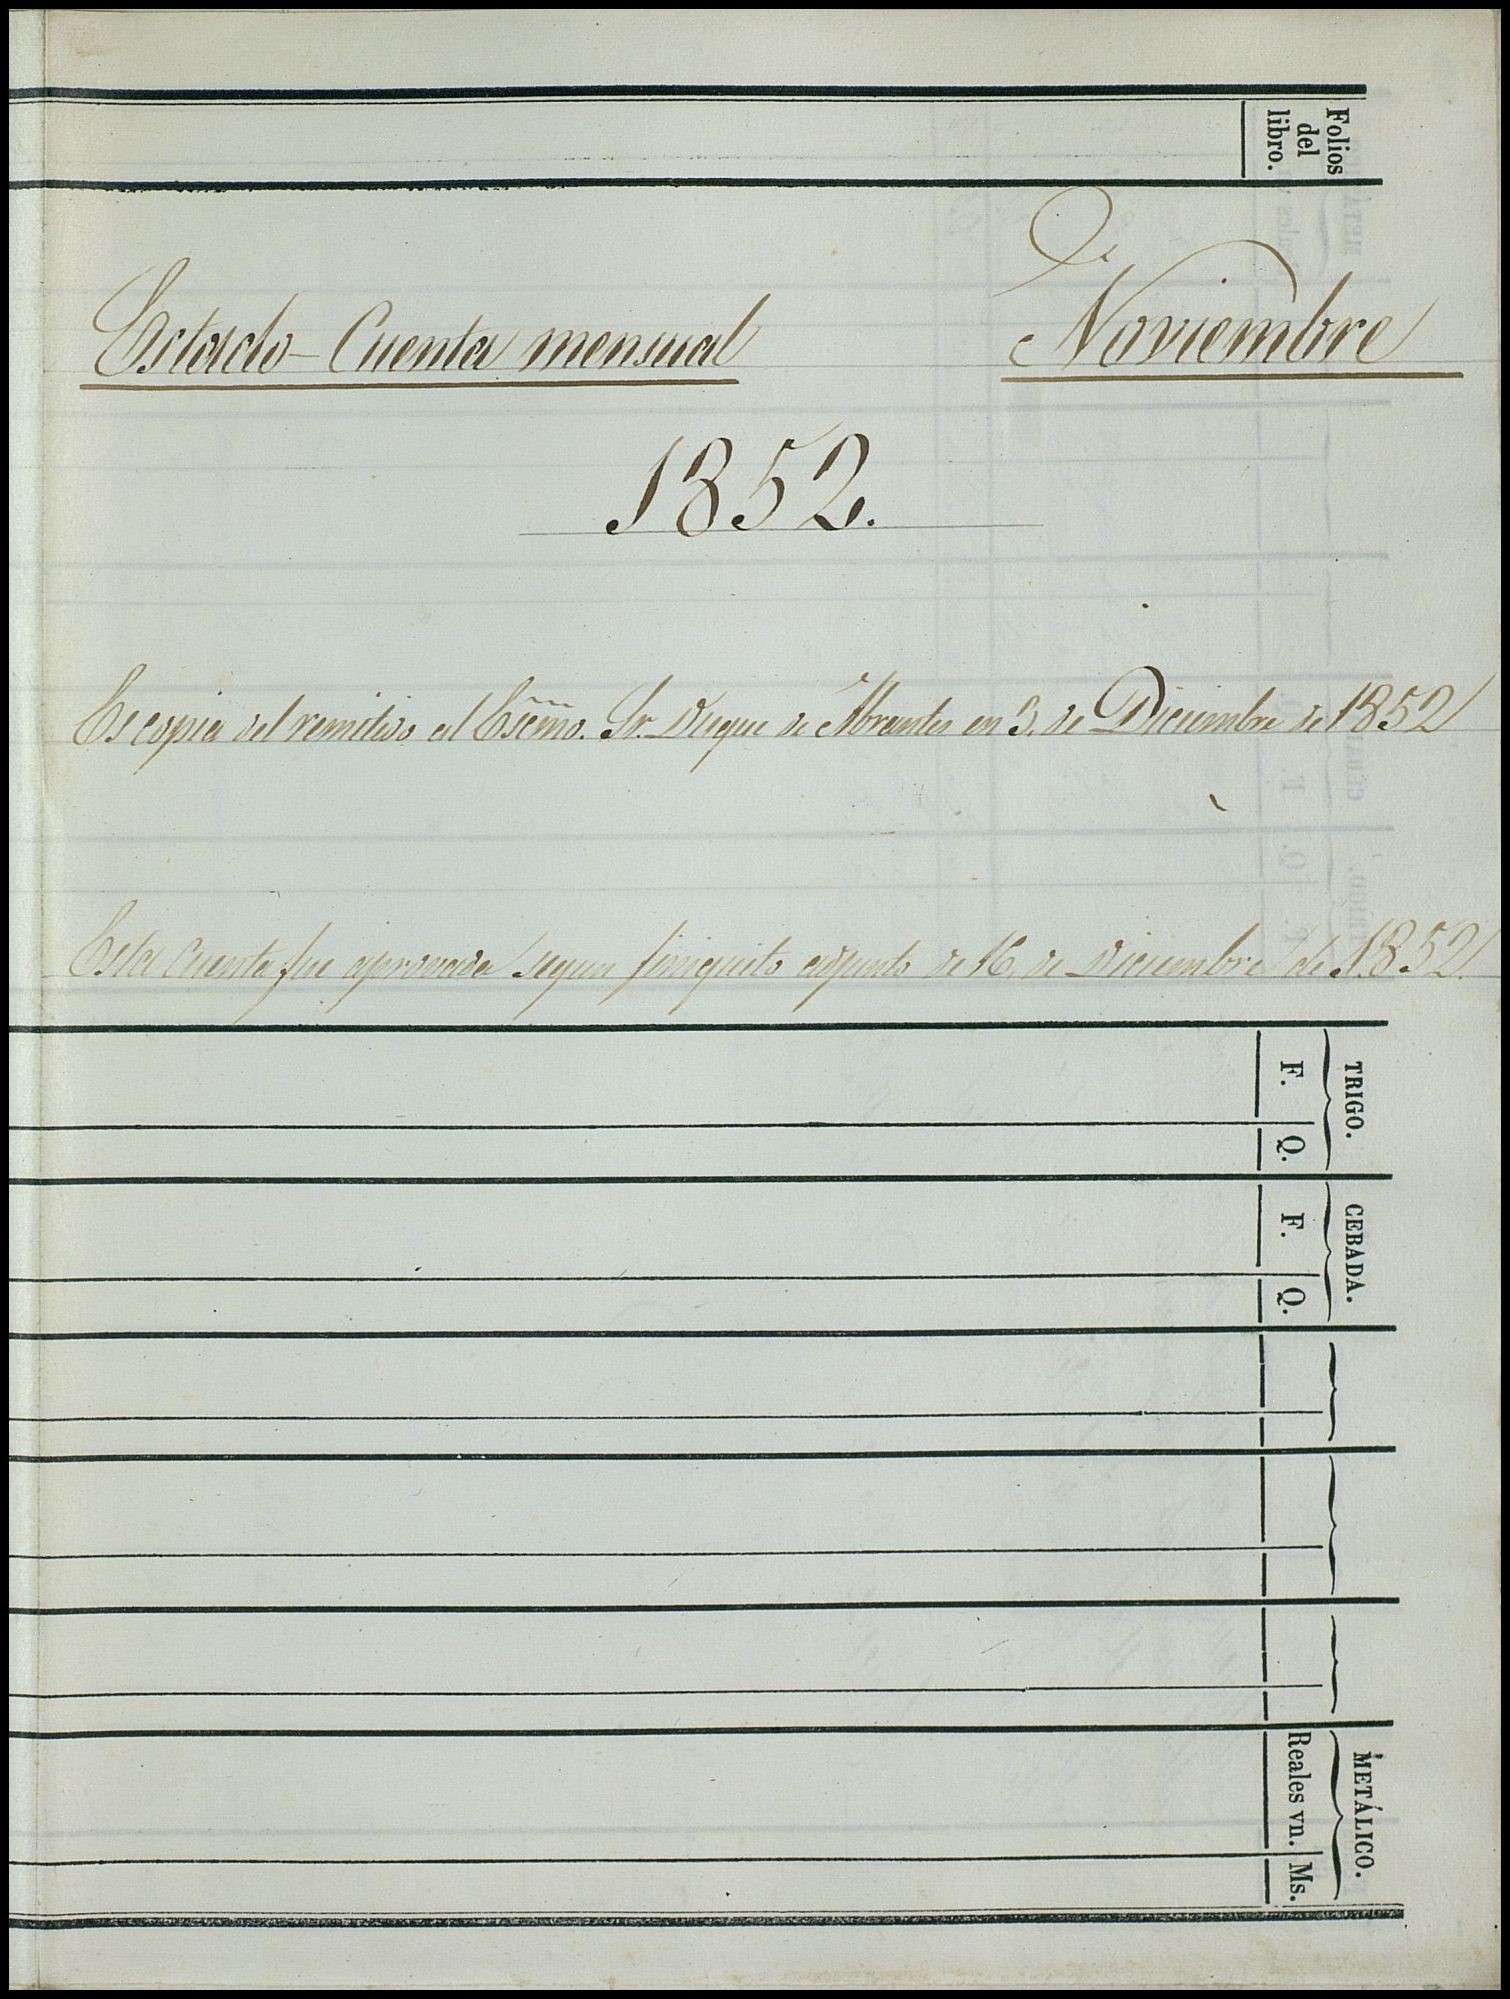 Folios
del
libro.
De
Estado-Cuenta mensual Noviembre
1852.
Es copia del remitido al Escmo. Sr. Duque de Abrantes en 3. de Diciembre de 1852
Esta Cuenta fue aprovada segun finiquito adjunto de 16. de Diciembre de 1852.
TRIGO.
F. Q.
CEBADA.
F. Q.
METÁLICO.
Reales vn. Ms.